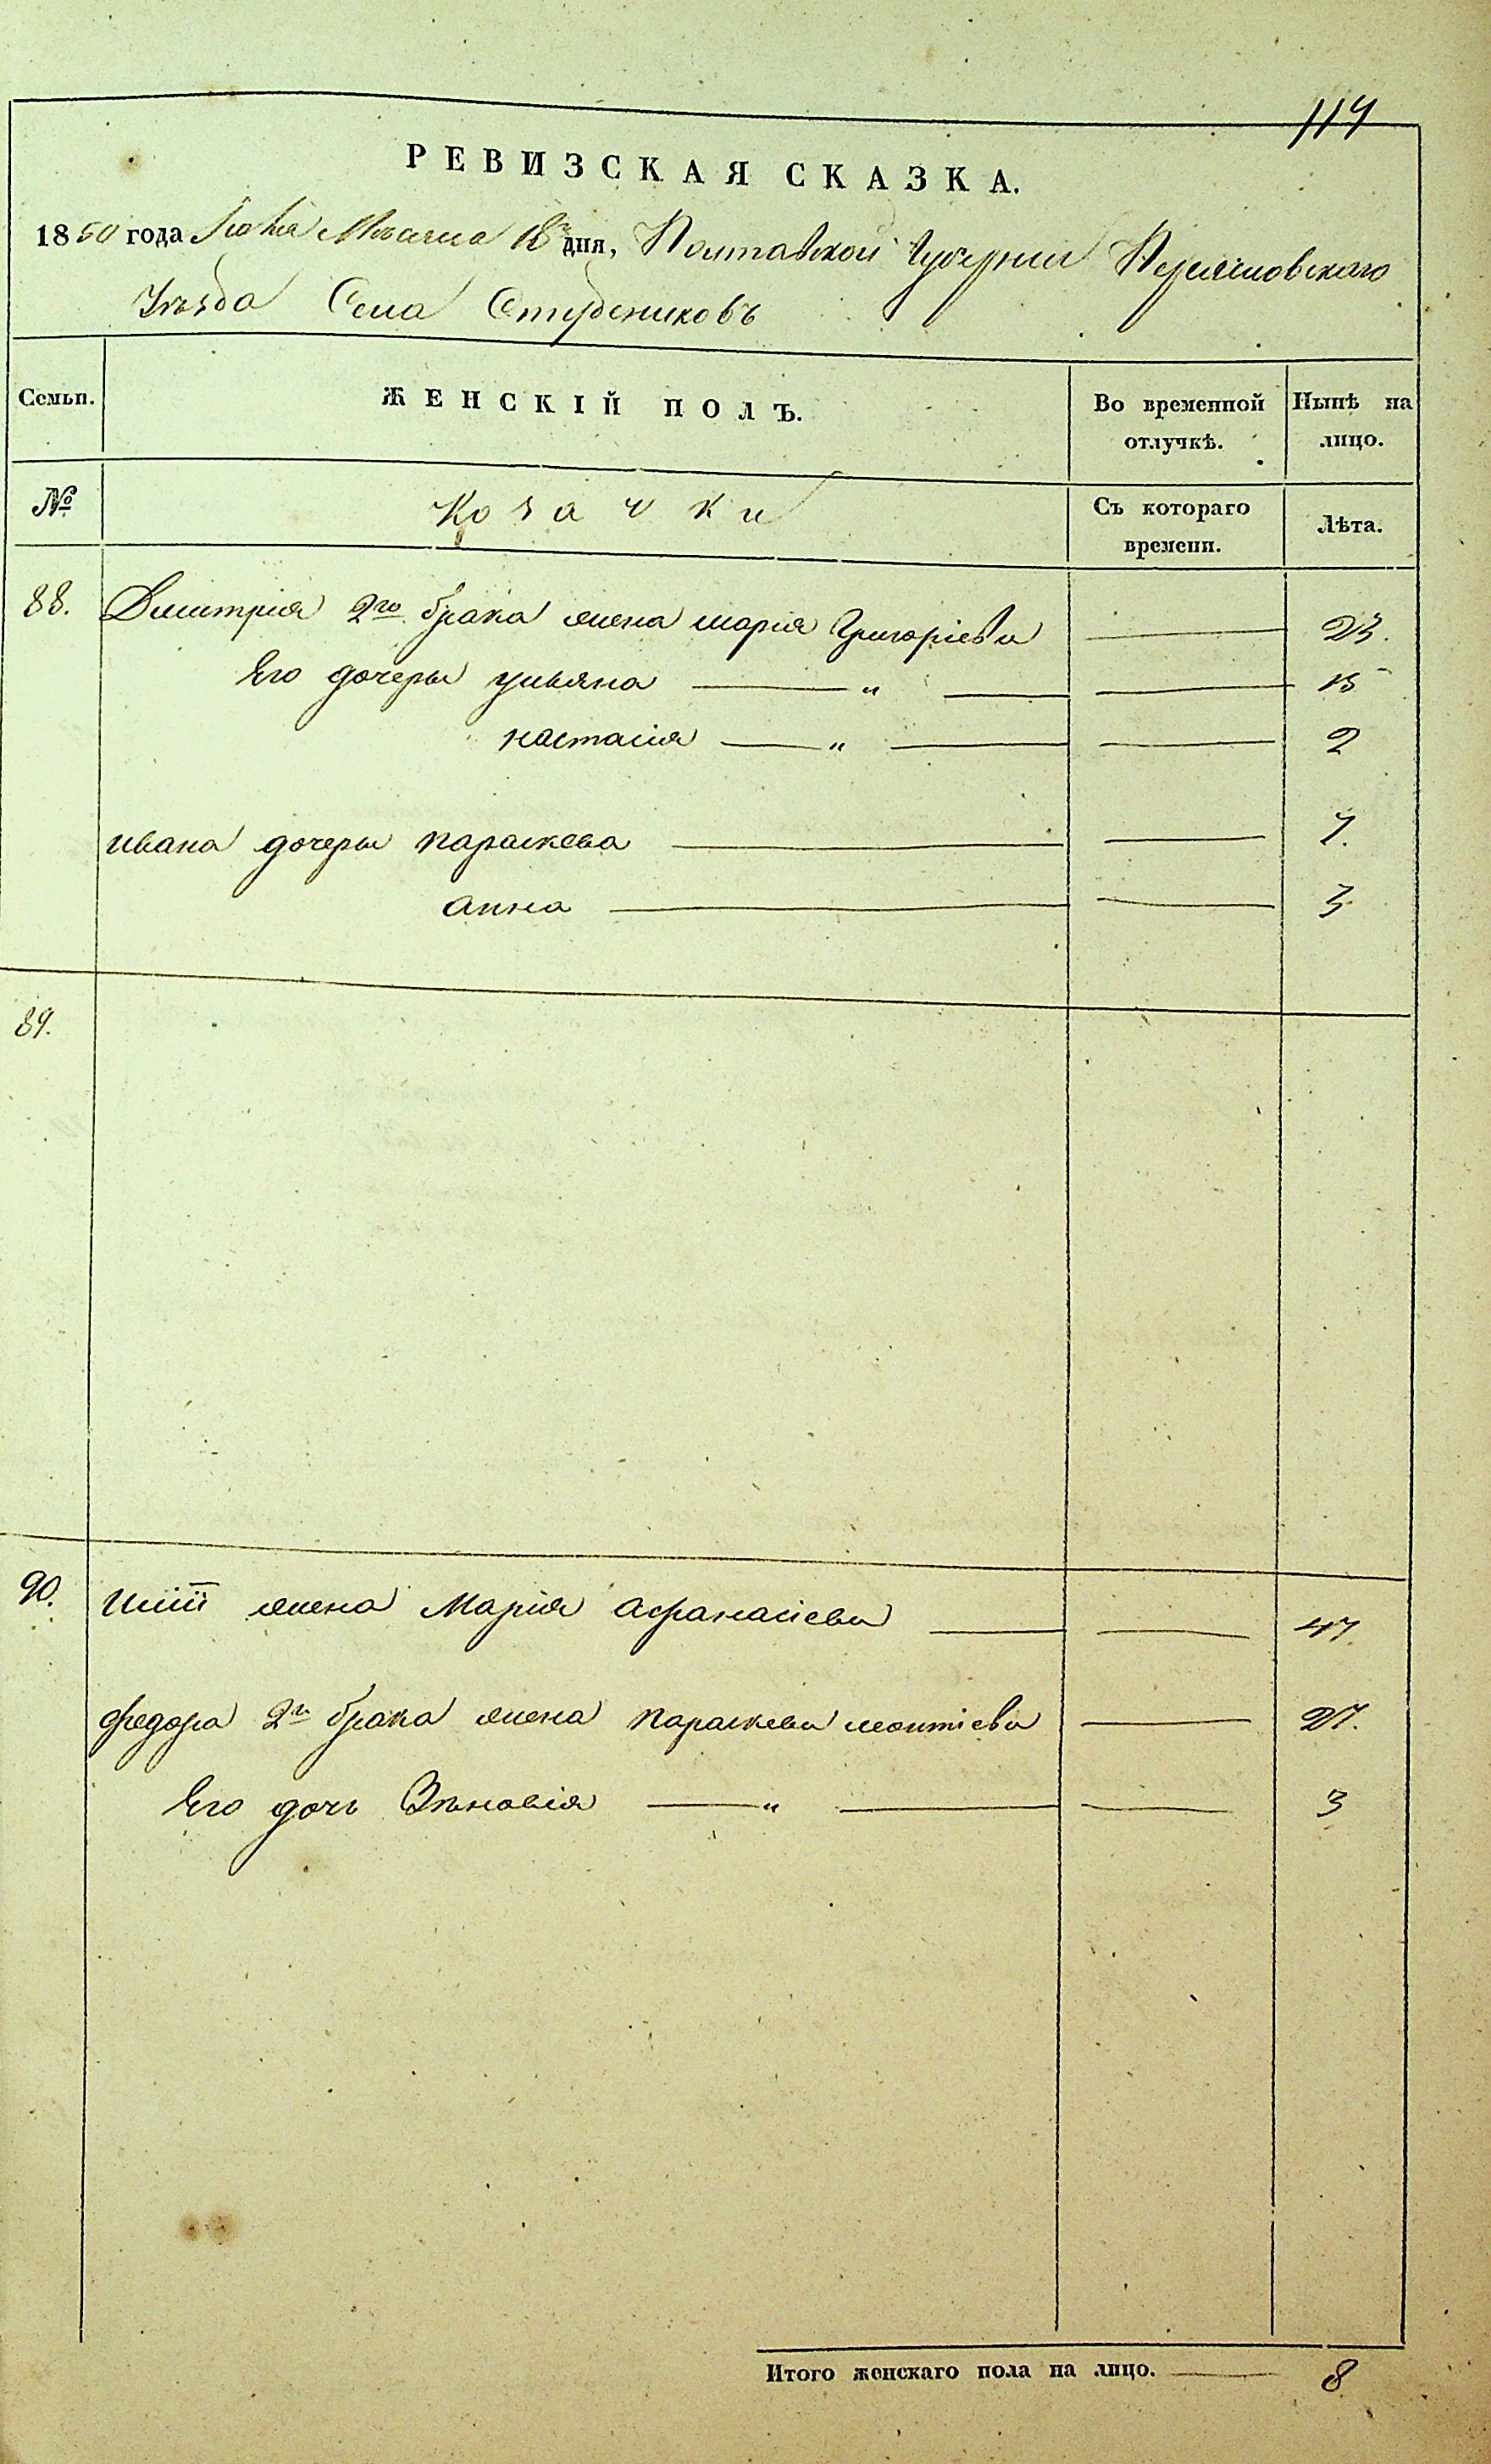 114
РЕВИЗСКАЯ СКАЗКА.
1850 года Мѣсяца 18 дня, Полтавской Губерніи Переяславского
Уѣзда Села Студениковъ
Семьи. ЖЕНСКІЙ ПОЛЪ. Во временной отлучкѣ. Нынѣ на лицо.
№ Козачки Съ котораго времени. Лѣта.
88. Дмитрія 2го брака жена марія Григоріева 23.
Его дочери ульяна " 15
настасія " 2
ивана дочери параскева 7.
анна 3
89.
90. жена Марія афанасіева 47.
федора 2го брака жена параскева леонтіева 27.
Его дочь Зѣновія " 3
Итого женскаго пола на лицо. 8